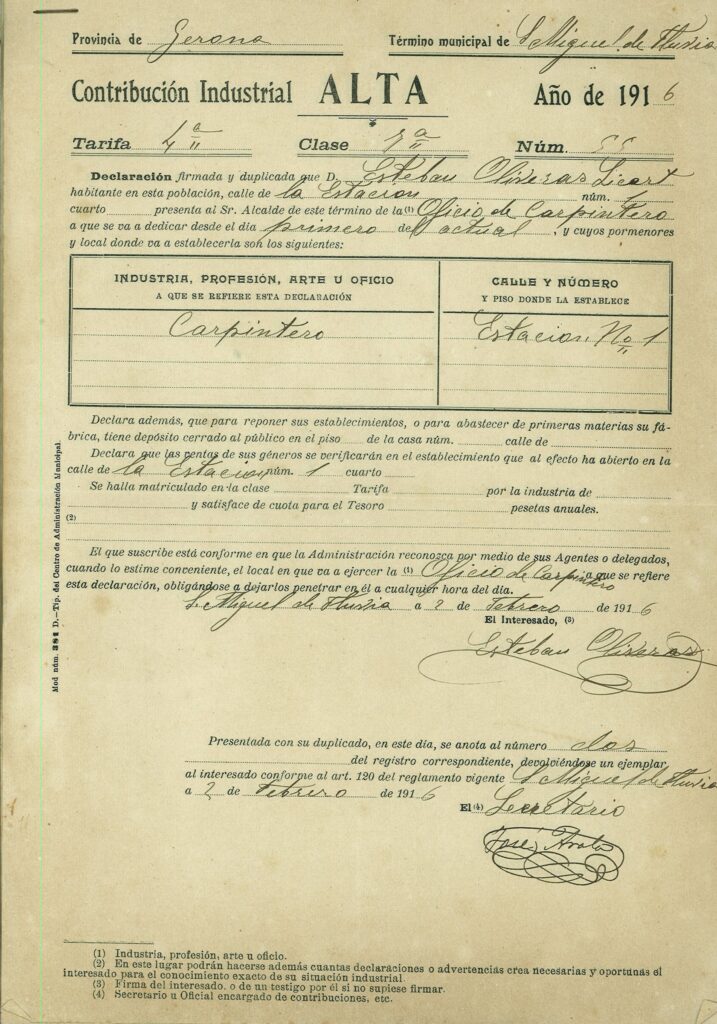 Provincia de Gerona Término municipal de S. Miguel de Fluvia
Contribución Industrial ALTA Año de 1916
Tarifa 4ª Clase 7ª Núm.
Declaración firmada y duplicada que D. Esteban Oliveras
habitante en esta población, calle de la Estacion núm. 1
cuarto presenta al Sr. Alcalde de este término de la (1) Oficio de Carpintero
a que se va a dedicar desde el día primero del actual, y cuyos pormenores
y local donde va a establecerla son los siguientes:
INDUSTRIA, PROFESIÓN, ARTE U OFICIO
A QUE SE REFIERE ESTA DECLARACIÓN
CALLE Y NÚMERO
Y PISO DONDE LA ESTABLECE
Carpintero Estacion, No 1
Declara además, que para reponer sus establecimientos, o para abastecer de primeras materias su fá-
brica, tiene depósito cerrado al público en el piso de la casa núm. calle de
Declara que las ventas de sus géneros se verificarán en el establecimiento que al efecto ha abierto en la
calle de la Estacion núm. 1 cuarto
Se halla matriculado en la clase Tarifa por la industria de
y satisface de cuota para el Tesoro pesetas anuales.
(2)
El que suscribe está conforme en que la Administración reconozca por medio de sus Agentes o delegados,
cuando lo estime conveniente, el local en que va a ejercer la (1) Oficio de Carpintero a que se refiere
esta declaración, obligándose a dejarlos penetrar en él a cualquier hora del día.
S. Miguel de Fluvia a 2 de Febrero de 1916
El Interesado, (3)
Esteban Oliveras
Mod núm. 381 D.—Tip. del Centro de Administración Municipal.
Presentada con su duplicado, en este día, se anota al número dos
del registro correspondiente, devolviéndose un ejemplar
al interesado conforme al art. 120 del reglamento vigente S. Miguel de Fluvia
a 2 de Febrero de 1916
El (4) Secretario
José
(1) Industria, profesión, arte u oficio.
(2) En este lugar podrán hacerse además cuantas declaraciones o advertencias crea necesarias y oportunas el
interesado para el conocimiento exacto de su situación industrial.
(3) Firma del interesado. o de un testigo por él si no supiese firmar.
(4) Secretario u Oficial encargado de contribuciones, etc.